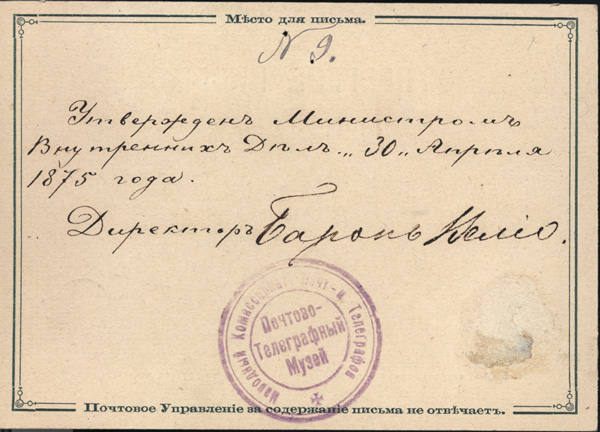 Мѣсто для письма.
N 9.
Утвержденъ Министромъ
Внутреннихъ Дѣлъ „ 30 „ Апрѣля
1875 года.
Директоръ Баронъ Веліо.
Народный Комиссариат Почт- и Телеграфов
Почтово-
Телеграфный
Музей
Почтовое Управленіе за содержаніе письма не отвѣчаетъ.